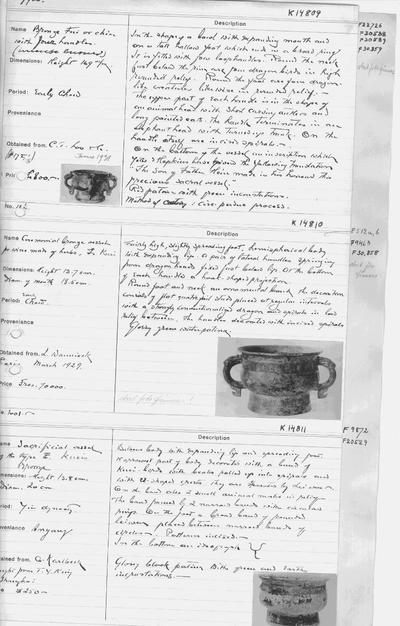 K14809
F22726
F30538
F30539
F30359
Description
Name Bronze Fui or chien
with four handles.
Dimensions: Height 24.9 cm
Period: Early Chou
Provenance
Obtained from C.T. Loo & Co.
Price £800.—
No. 182
In the shape of a bowl with expanding mouth and
on a tall hollow foot which ends in a broad ring
It is fitted with four loop handles. Round the neck
just below the rim are four dragon birds in high
rounded relief. Round the foot are four dragon-
like creatures likewise in rounded relief.
The upper part of each handle is in the shape of
an animal head with short curving antlers and
long pointed ears. The handle terminates in an
elephant head with turned up trunk. On the
handle itself are incised spirals.
On the bottom of the vessel an inscription which
"The son of Father Kuei made in his honour this
precious sacral vessel."
Red patina with green incrustations.
Method of casting: Cire-perdue process.
K14810
F512 a, b
F9463
F30,358
Description
Name Ceremonial bronze vessel
for wine made of herbs. Fu Kuei
Dimensions: Height 13.7 cm
Diam. of mouth 18.5 cm
Period: Chou
Provenance
Obtained from L. Wannieck
Paris March 1929.
Price Frcs. 70000.
Fairly high, slightly spreading foot, hemispherical body
with expanding lip. A pair of lateral handles springing
from dragon heads fixed just below lip. At the bottom
of each handle a hook-shaped projection.
Round foot and neck an ornamental band, the decoration
consists of flat quatrefoil studs placed at regular intervals
with a strongly conventionalized dragon and spirals in low
relief between. The handles decorated with incised spirals
Glossy green water patina.
K14811
F9572
F20529
Description
Name Sacrificial vessel
of the type I Kuei
Bronze
Dimensions: Height 13.8 cm
Diam. 20 cm
Period: Yin dynasty
Provenance Anyang
Obtained from O. Karlbeck
bought from T.Y. King
Shanghai
$250.—
Bulbous body with expanding lip and spreading foot.
Narrowed part of body decorated with a band of
Kuei birds with beaks rolled up into spirals and
with U-shaped crests. They are separated by leiwen.
On the band also 2 small animal masks in relief.
The band framed by 2 narrow bands with circular
rings. On the foot a broad band of rounded
leiwen placed between narrow bands of
circles. Patterns incised.
In the bottom an ideograph
Glossy black patina with green and earth
incrustations.—